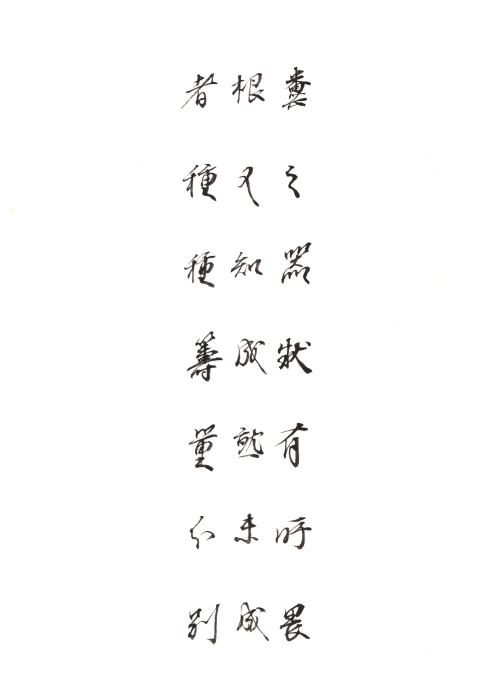 糞之器狀有所畏
根又知成就未成
者種種籌量分別